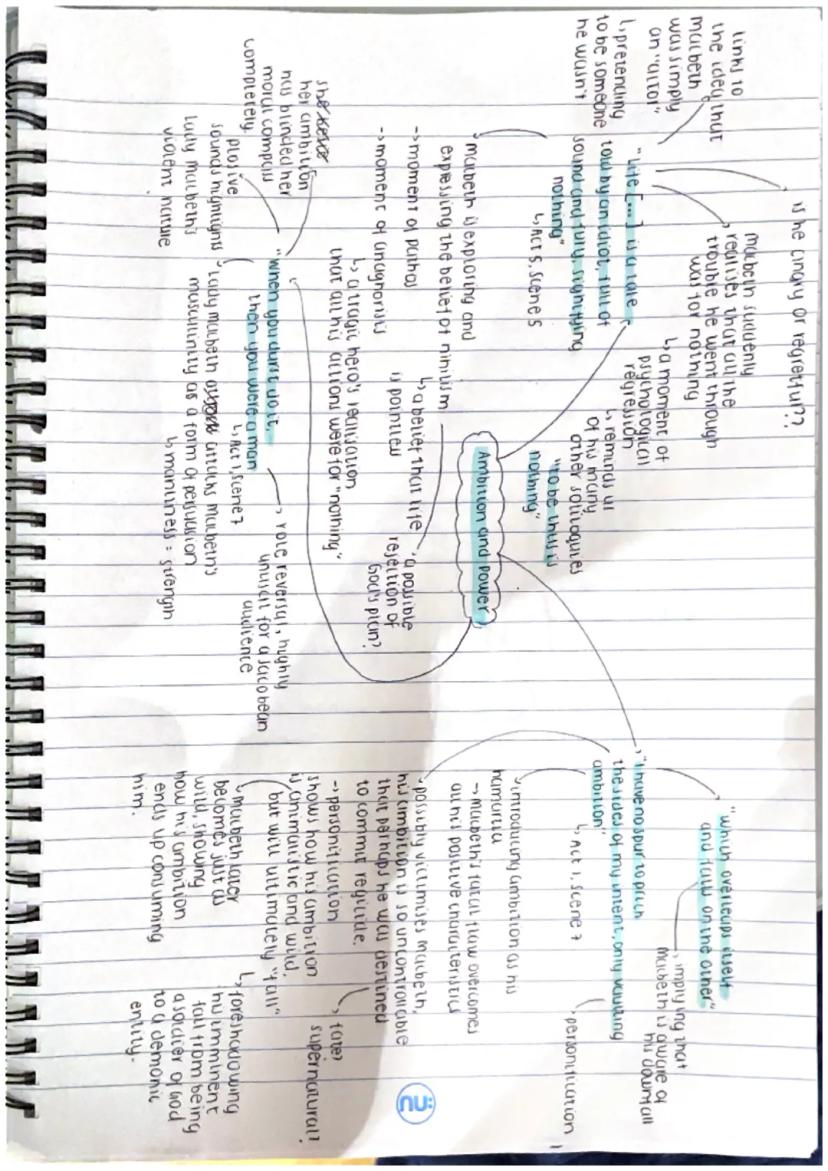 is he angry or regretful??
links to
the idea that
macbeth
was simply
an "actor"
↳ pretending
to be someone
he wasn't
macbeth suddenly
realises that all the
trouble he went through
was for nothing
↳ a moment of
psychological
regression
↳ reminds us
of his many
other soliloquies
"to be thus is
nothing"
"Life [...] is a tale
told by an idiot, full of
sound and fury, signifying
nothing"
↳ Act 5, scene 5
macbeth is exploring and
expressing the belief of nihilism
→ moment of pathos
→ moment of anagnorisis
↳ a tragic hero's realisation
that all his actions were for "nothing"
↳ a belief that life
is pointless
a possible
rejection of
God's plan?
Ambition and power
her ambition
has blinded her
moral compass
completely.
plosive
sounds highlights
lady macbeth's
violent nature
"when you durst do it
then you were a man
↳ Act 1, scene 7
Lady macbeth attacks macbeth's
masculinity as a form of persuasion
↳ manliness = strength
→ role reversal, highly
unusual for a Jacobean
audience
"which overleaps itself
and falls on the other"
implying that
Macbeth is aware of
his downfall
"i have no spur to prick
the sides of my intent, only vaulting
ambition"
↳ Act 1, scene 7
personification
introducing ambition as his
hamartia
→ macbeth's fatal flaw overcomes
all his positive characteristics
possibly victimises macbeth,
his ambition is so uncontrollable
that perhaps he was destined
to commit regicide.
fate?
supernatural?
→ personification
shows how his ambition
is animalistic and wild,
but will ultimately "fall"
macbeth later
becomes just as
wild, showing
how his ambition
ends up consuming
him.
↳ foreshadowing
his imminent
fall from being
a soldier of God
to a demonic
entity.